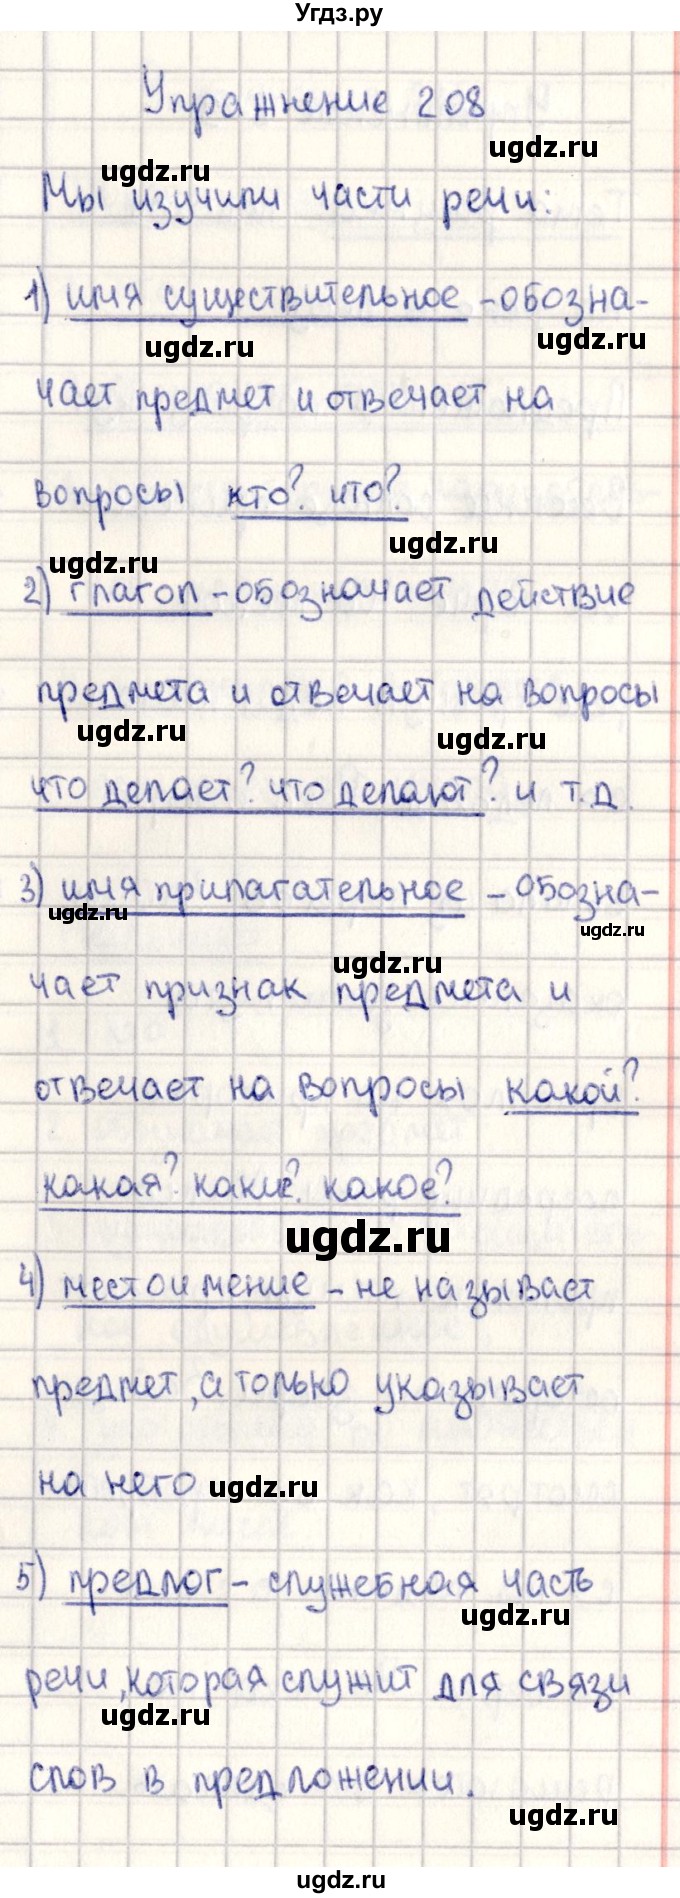 Угдз.ру
Упражнение 208
ugdz.ru
ugdz.ru
Мы изучили части речи:
1) имя существительное - обозна-
ugdz.ru
ugdz.ru
чает предмет и отвечает на
вопросы кто? что?
ugdz.ru
ugdz.ru
2) глагол - обозначает действие
предмета и отвечает на вопросы
ugdz.ru
ugdz.ru
что делает? что делают? и т.д.
3) имя прилагательное - обозна-
ugdz.ru
ugdz.ru
ugdz.ru
чает признак предмета и
отвечает на вопросы какой?
какая? какие? какое?
ugdz.ru
4) местоимение - не называет
предмет, а только указывает
на него ugdz.ru
5) предлог - служебная часть
ugdz.ru
речи, которая служит для связи
ugdz.ru
слов в предложении.
ugdz.ru
ugdz.ru